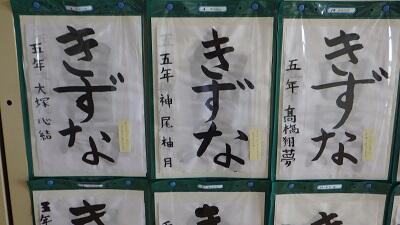 きずな
五年 大塚心結
きずな
五年 神尾柚月
きずな
五年 高橋翔夢
き
五年
き
き